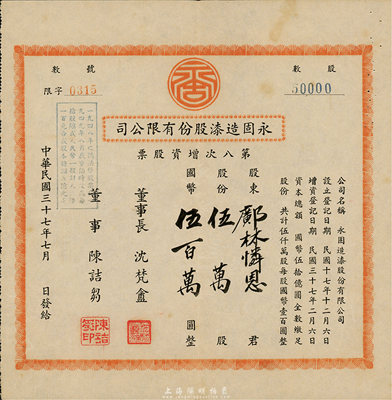 股數
50000
號數
限字 0315
永固造漆股份有限公司
第八次增資股票
公司名稱 永固造漆股份有限公司
設立登記日期 民國十七年十二月六日
增資登記日期 民國三十七年二月六日
資本總額 國幣伍拾億圓全數繳足
股份 共計伍仟萬股每股國幣壹百圓整
股東 鄺林憐恩 君
股份 伍萬 股
國幣 伍百萬 圓整
董事長 沈梵盦
董事 陳詰芻
中華民國三十七年七月 日發給
上海陽明拍賣